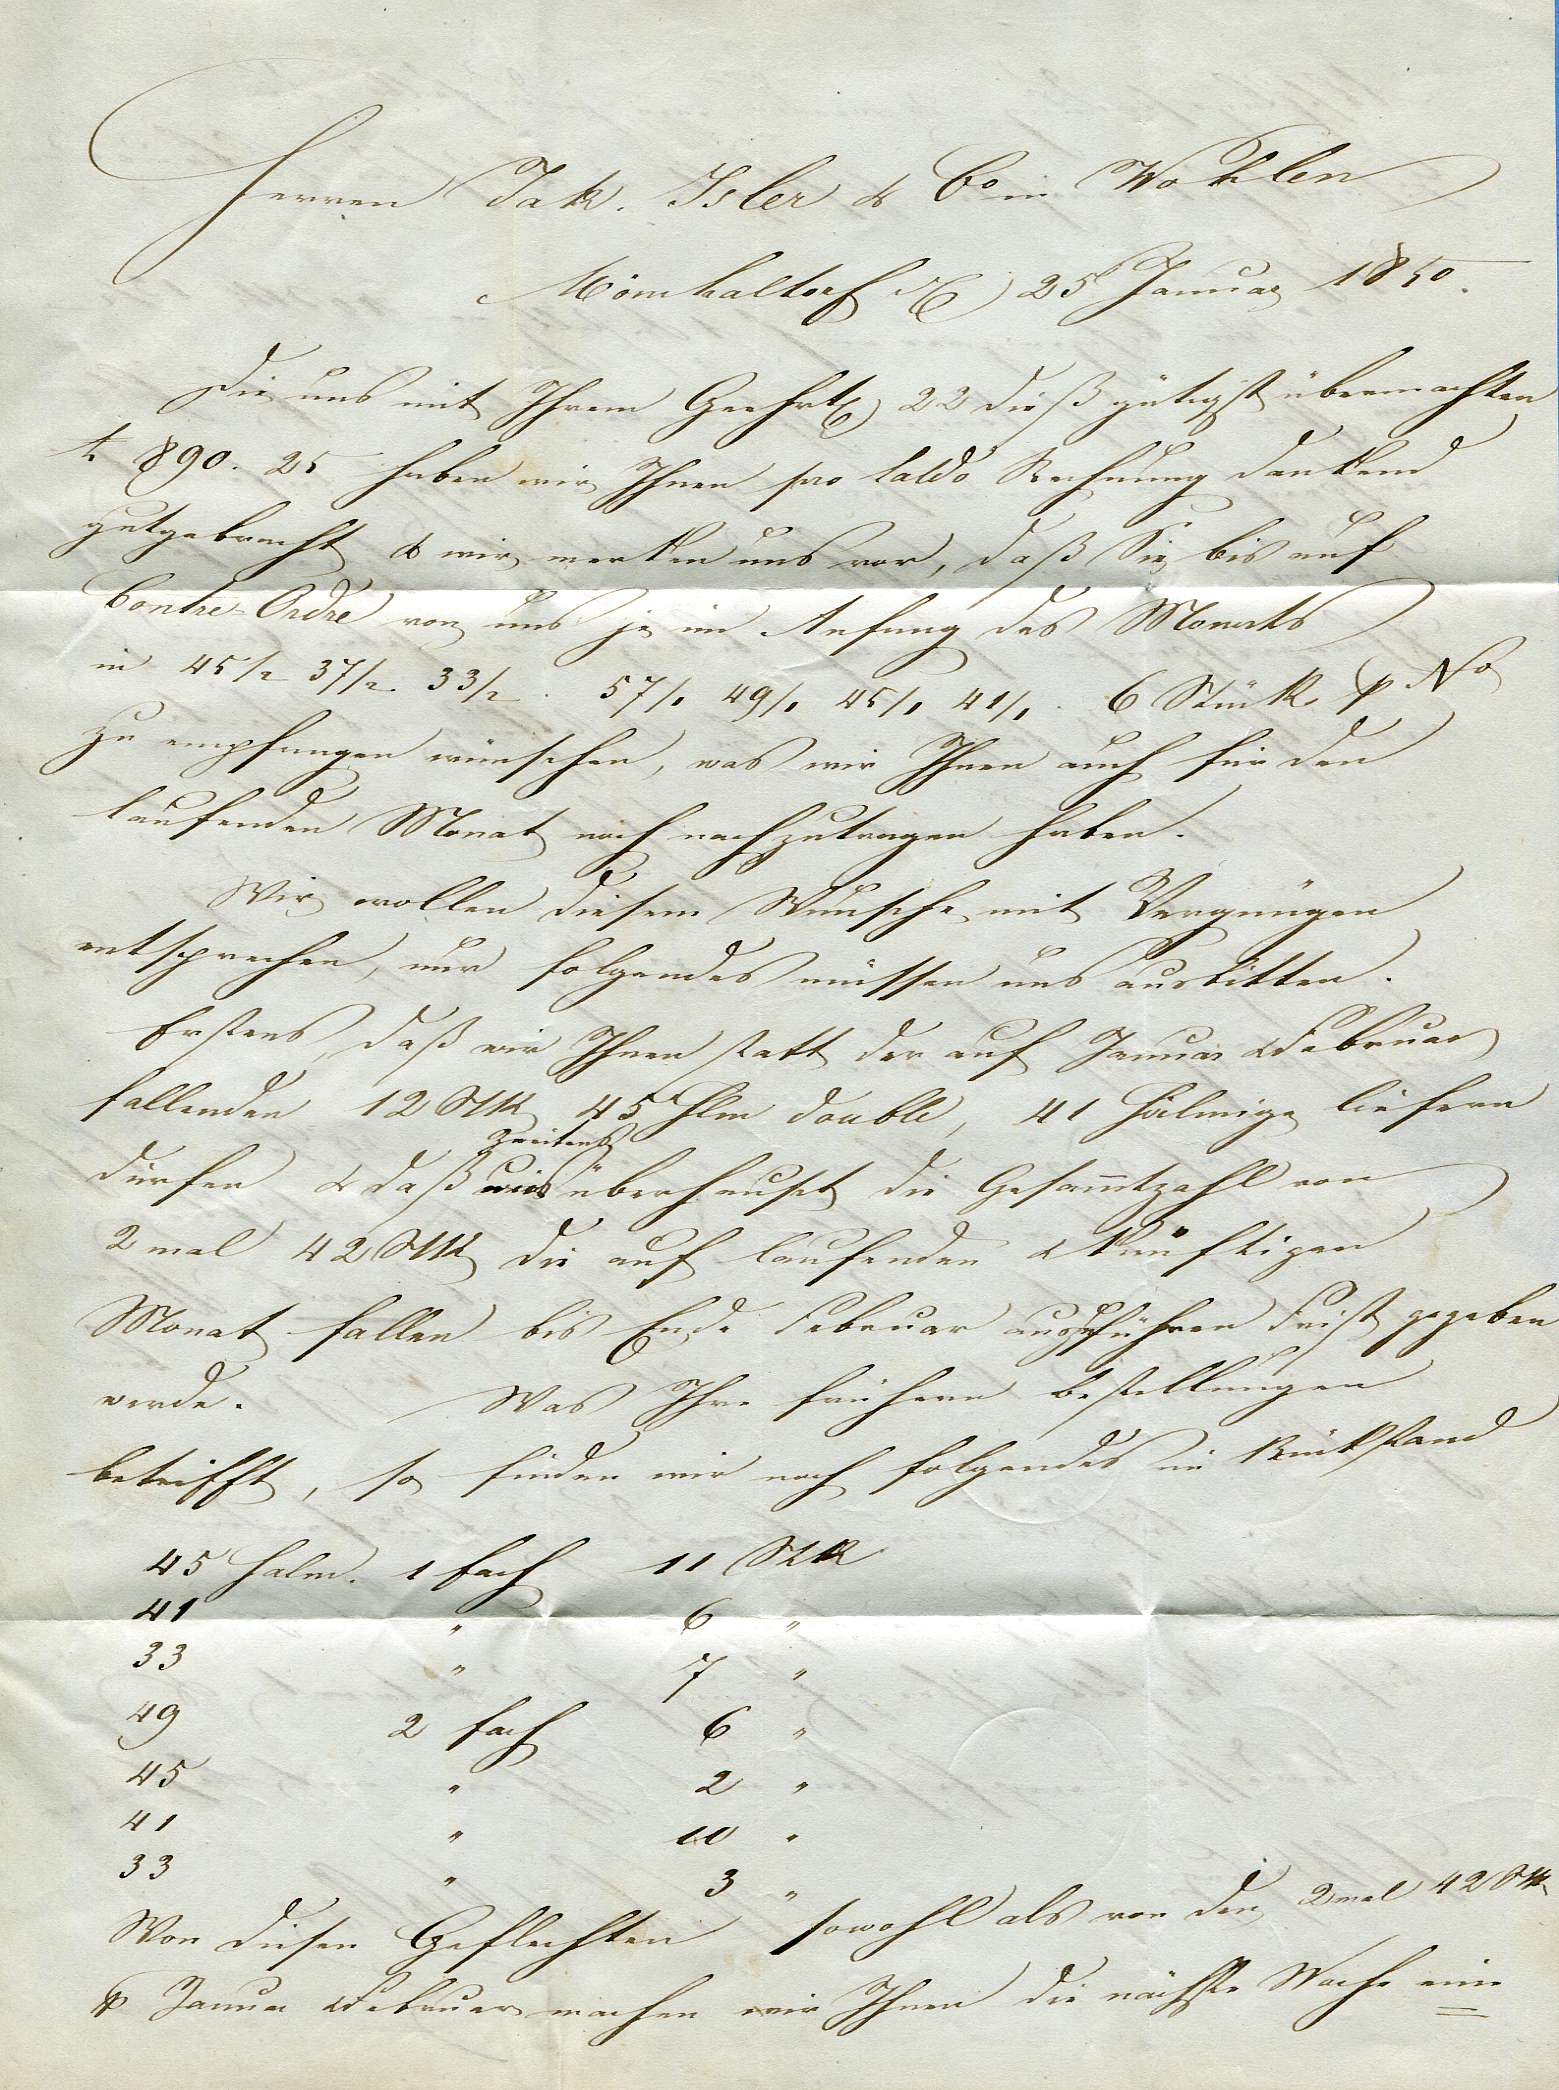 Herren Jak. Isler & Co in Wohlen
Mönchaltorf 25 Januar 1850.
Die uns mit Ihrem Geehrten 22 dieß gütigst übermachten
f. 890. 25 haben wir Ihnen pro Saldo Rechnung dankend
gutgebracht & wir merken uns vor, daß Sie bis auf
Contre-Ordre von uns je im Anfang des Monats
in 45/2 37/2. 33/2. 57/1 49/1 45/1 41/1. 6 Stück p No
zu empfangen wünschen, was wir Ihnen auch für den
laufenden Monat noch nachzutragen haben.
Wir wollen diesem Wunsche mit Vergnügen
entsprechen, nur folgendes müssen uns ausbitten.
Erstens, daß wir Ihnen statt der auf Januar & Februar
fallenden 12 Stk 45 Hlm double, 41 hälmige liefern
dürfen & daß zweitens uns überhaupt die Gesammtzahl von
2 mal 42 Stk die auf laufenden & künftigen
Monat fallen bis Ende Februar auszuführen Frist gegeben
werde. Was Ihre frühern Bestellungen
betrifft, so finden wir noch folgendes im Rückstand
45 Halm. 1 fach 11 Stk
41 " 6 "
33 " 7 "
49 2 fach 6 "
45 " 2 "
41 " 10 "
33 " 3 "
Von diesen Geflechten sowohl als von den 2 mal 42 Stk
p Januar & Februar machen wir Ihnen die nächste Woche eine